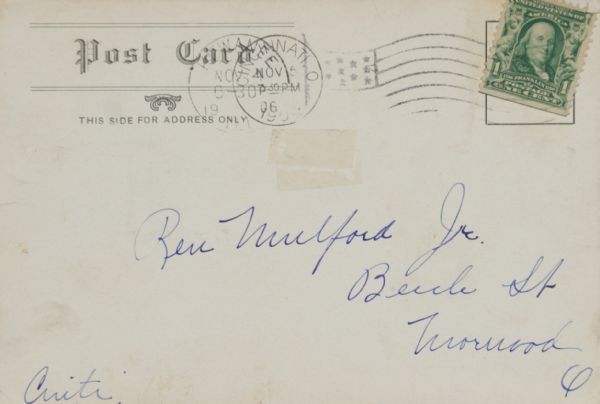 Post Card
THIS SIDE FOR ADDRESS ONLY
CINCINNATI, O.
NOV 5
7-30 PM
06
NOV
6-30
19
UNITED STATES OF
AMERICA
1 1
FRANKLIN
ONE CENT
Ren Mulford Jr.
Beech St
Norwood
O
Cinti.